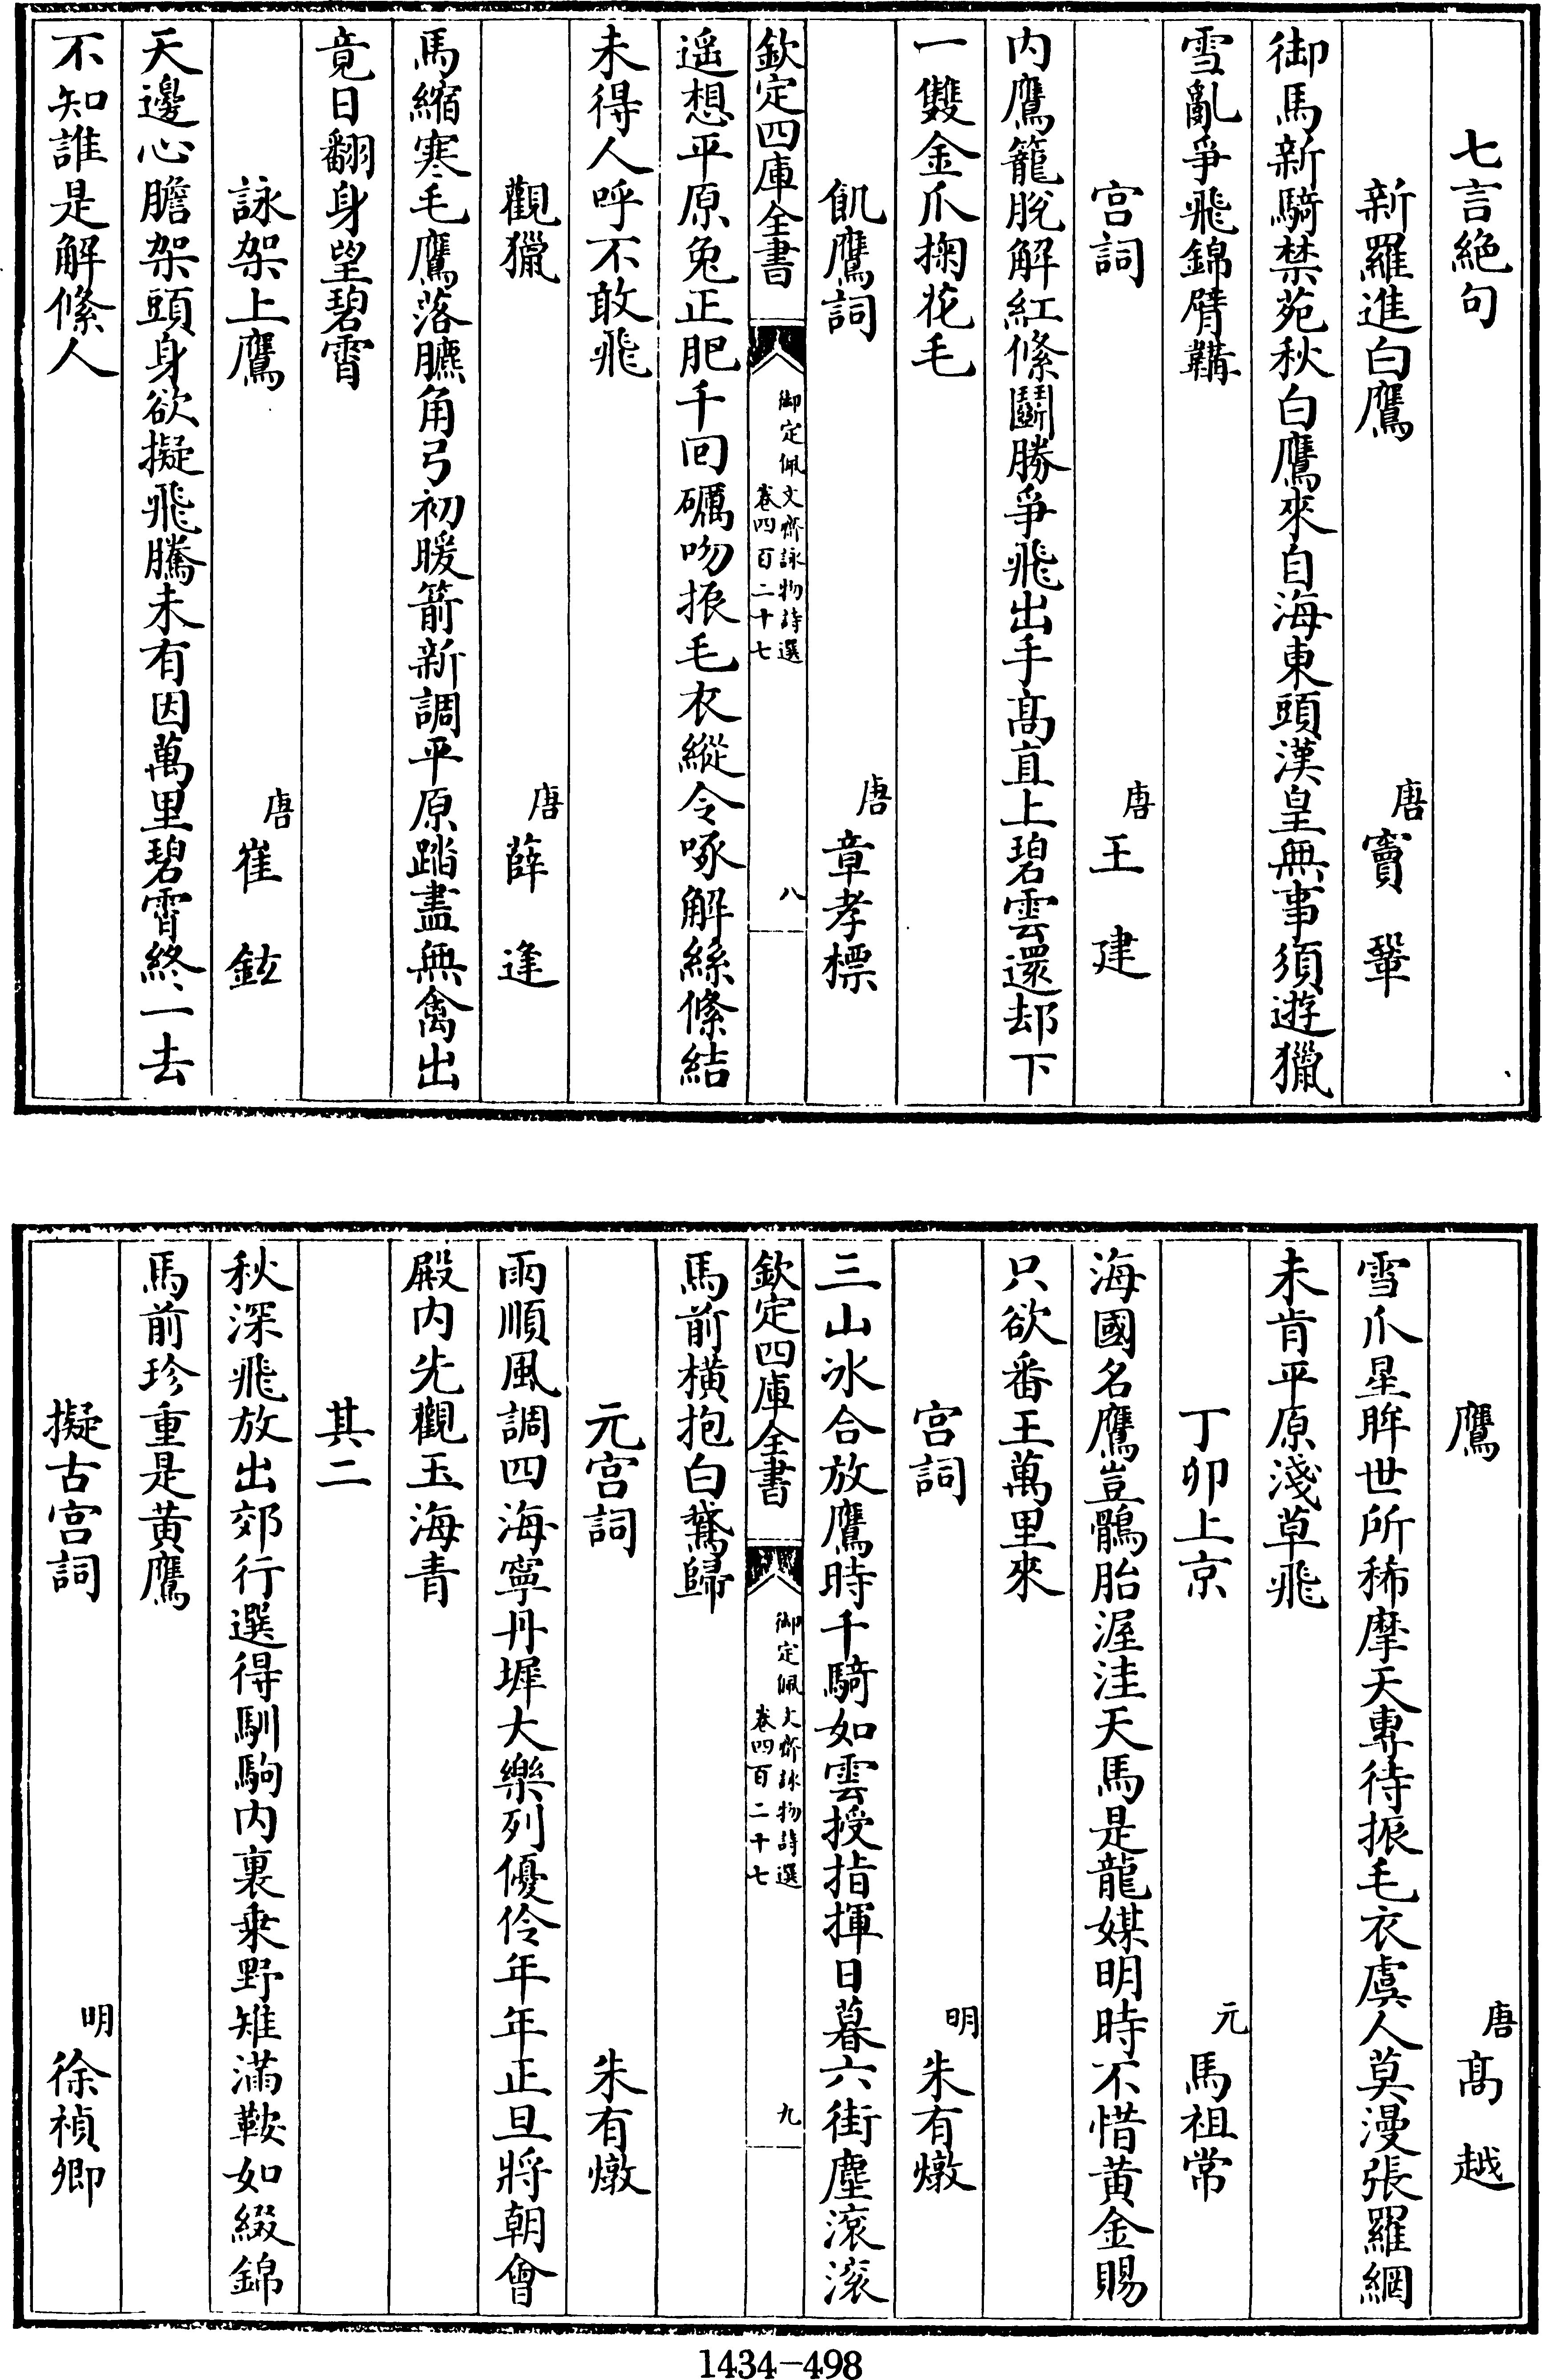 七言絕句
新羅進白鷹　唐竇鞏
御馬新騎禁苑秋白鷹來自海東頭漢皇無事須遊獵
雪亂爭飛錦臂鞲
宮詞　唐王建
內鷹籠脫解紅絛鬭勝爭飛出手高直上碧雲還却下
一雙金爪掬花毛
飢鷹詞　唐章孝標
欽定四庫全書
御定佩文齋詠物詩選
卷四百二十七
八
遥想平原兔正肥千回礪吻振毛衣縱令啄解絲絛結
未得人呼不敢飛
觀獵　唐薛逢
馬縮寒毛鷹落臕角弓初暖箭新調平原踏盡無禽出
竟日翻身望碧霄
詠架上鷹　唐崔鉉
天邊心膽架頭身欲擬飛騰未有因萬里碧霄終一去
不知誰是解絛人
鷹　唐高越
雪爪星眸世所稀摩天專待振毛衣虞人莫漫張羅網
未肯平原淺草飛
丁卯上京　元馬祖常
海國名鷹豈鶻胎渥洼天馬是龍媒明時不惜黃金賜
只欲番王萬里來
宮詞　明朱有燉
三山冰合放鷹時千騎如雲授指揮日暮六街塵滾滾
欽定四庫全書
御定佩文齋詠物詩選
卷四百二十七
九
馬前橫抱白鵞歸
元宮詞　朱有燉
雨順風調四海寧丹墀大樂列優伶年年正旦將朝會
殿內先觀玉海青
其二
秋深飛放出郊行選得馴駒內裏乘野雉滿鞍如綴錦
馬前珍重是黃鷹
擬古宮詞　明徐禎卿
1434-498